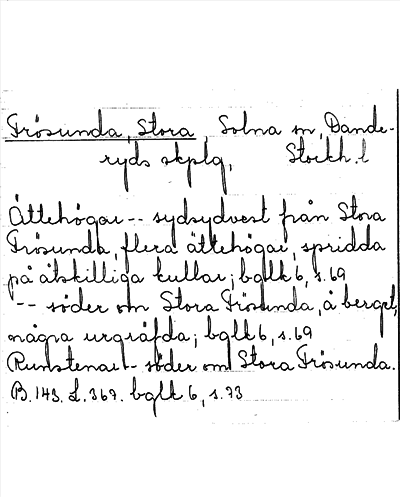 Frösunda, Stora, Solna sn, Dande-
ryds skplg, Stockh. l
Ättehögar -- sydsydvest från Stora
Frösunda, flera ättehögar, spridda
på åtskilliga kullar; bglk 6, s. 69
" -- söder om Stora Frösunda, å berget,
några urgräfda; bglk 6, s. 69
Runstenar -- söder om Stora Frösunda.
B. 143. L. 367. bglk 6, s. 73